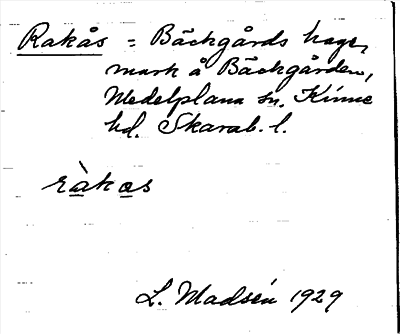 Rakås = Bäckgårds hage,
mark å Bäckgården,
Medelplana sn. Kinne
hd. Skarab. l.
ràkas
L. Madsén 1929